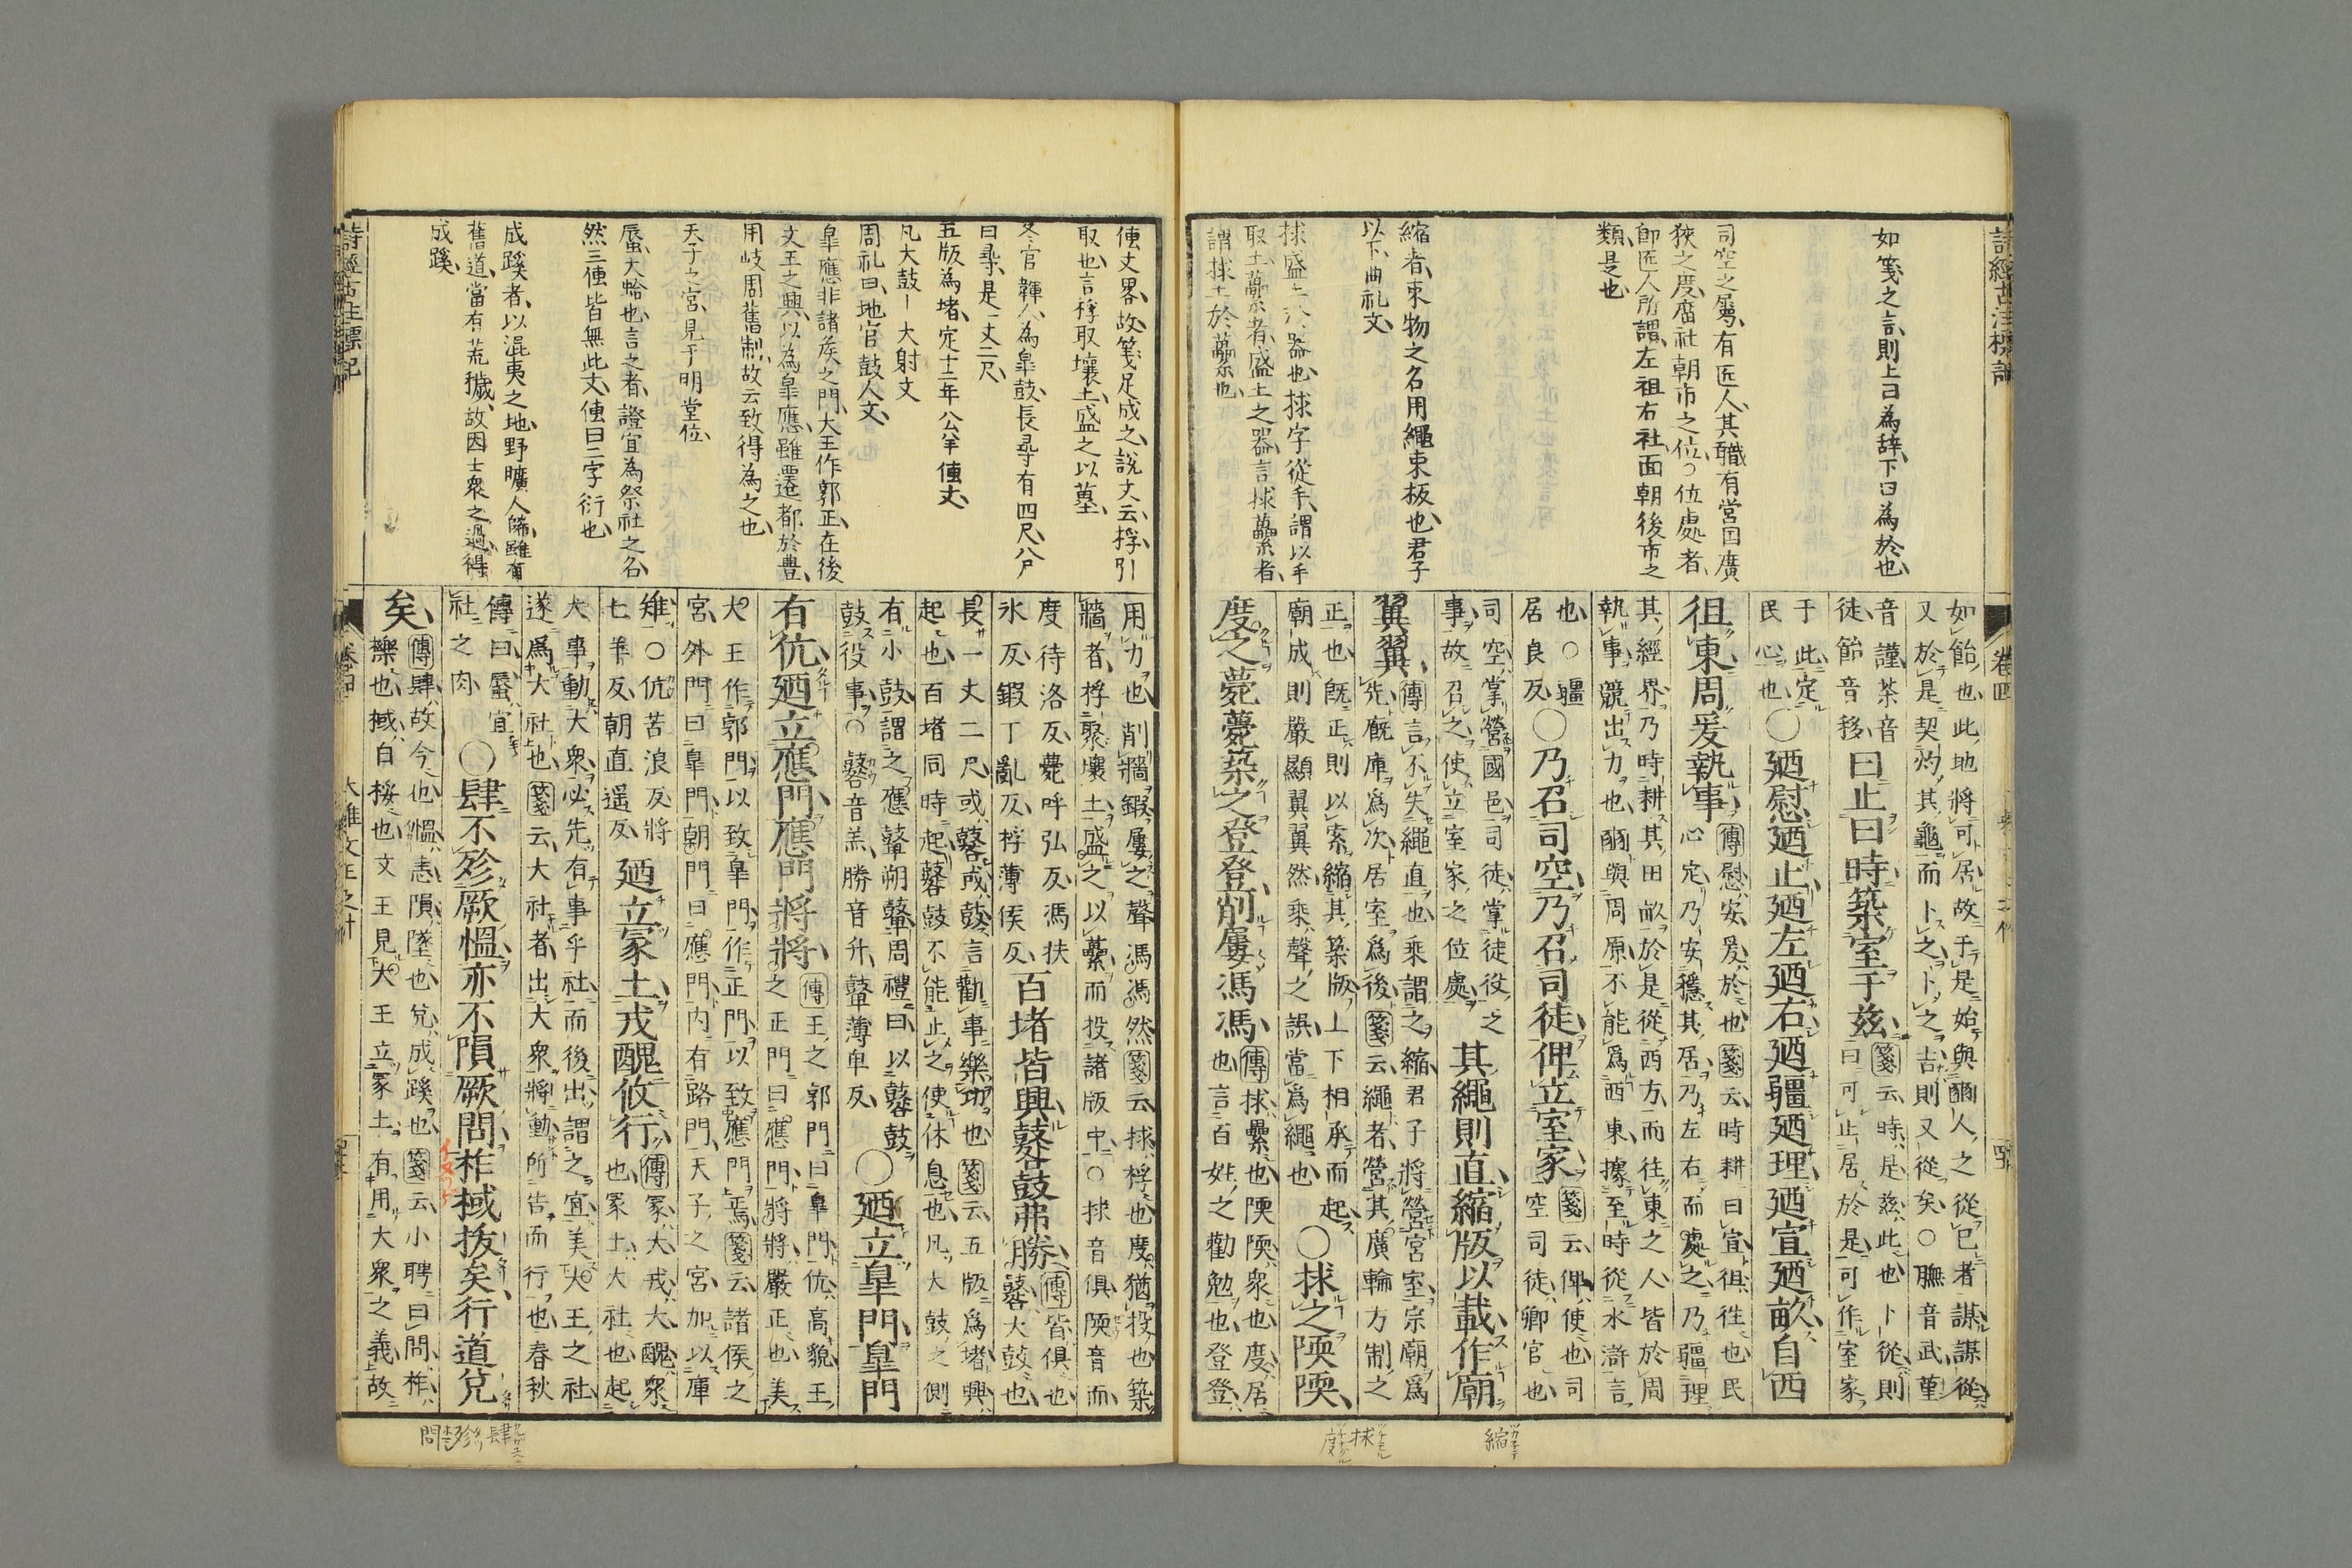 詩經古注標記
卷四
如箋之言則上曰為辞下曰為於也
司空之屬有匠人其職有営国廣
狹之度廟社朝市之位○位處者
即匠人所謂左祖右社面朝後市之
類是也
縮者束物之名用繩束板也君子
以下曲礼文
捄盛土器也捄字從手謂以手
取土蘽者盛土之器言捄蘽者
謂捄土於蘽也
如飴也此地將可居故于是始與豳人之從己者謀謀從
又於是契灼其龜而卜之卜之吉則又從矣○膴音武堇
音謹荼音
徒飴音移
曰止曰時築室于兹
箋云時是兹此也卜從則
曰可止居於是可作室家
于此定
民心也
○廼慰廼止廼左廼右廼疆廼理廼宣廼畝自西
徂東周爰執事
傳慰安爰於也箋云時耕曰宣徂往也民
心定乃安穩其居乃左右而處之乃疆理
其經界乃時耕其田畝於是從西方而往東之人皆於周
執事競出力也豳與周原不能爲西東據至時從水滸言
也○疆
居良反
○乃召司空乃召司徒俾立室家
箋云俾使也司
空司徒卿官也
司空掌營國邑司徒掌徒役之
事故召之使立室家之位處
其繩則直縮版以載作廟
翼翼
傳言不失繩直也乘謂之縮君子將營宮室宗廟爲
先廐庫爲次居室爲後箋云繩者營其廣輪方制之
正也既正則以索縮其築版上下相承而起
廟成則嚴顯翼翼然乘聲之誤當爲繩也
○捄之陾陾
度之薨薨築之登登削屢馮馮
傳捄虆也陾陾衆也度居
也言百姓之勸勉也登登
縮
捄
度
傳文畧故箋足成之說文云捊引
取也言捊取壤土盛之以蘽
冬官韗人為皐鼓長尋有四尺八尺
曰尋是一丈二尺
五版為堵定十二年公羊傳文
凡大鼓ー大射文
周礼曰地官鼓人文
皐應非諸侯之門大王作郭正在後
文王之興以為皐應雖遷都於豊
用岐周舊制故云致得為之也
天子之宮見于明堂位
蜃大蛤也言之者證宜為祭社之名
然三傳皆無此文傳曰二字衍也
成蹊者以混夷之地野曠人稀雖有
舊道當有荒穢故因士衆之過得
成蹊
用力也削牆鍛屢之聲馮馮然箋云捄捊也度猶投也築
牆者捊聚壤土盛之以虆而投諸版中○捄音俱陾音而
度待洛反薨呼弘反馮扶
氷反鍛丁亂反捊薄侯反
百堵皆興鼛鼓弗勝
傳皆俱也
鼛大鼓也
長一丈二尺或鼛或鼓言勸事樂功也箋云五版爲堵興
起也百堵同時起鼛鼓不能止之使休息也凡大鼓之側
有小鼓謂之應鼙朔鼙周禮曰以鼛鼓
鼓役事○鼛音羔勝音升鼙薄卑反
○廼立皐門皐門
有伉廼立應門應門將將
傳王之郭門曰皐門伉高貌王
之正門曰應門將將嚴正也美
大王作郭門以致皐門作正門以致應門焉箋云諸侯之
宮外門曰皐門朝門曰應門内有路門天子之宮加以庫
雉○伉苦浪反將
七羊反朝直遥反
廼立冢土戎醜攸行
傳冢大戎大醜衆
也冢土大社也起
大事動大衆必先有事乎社而後出謂之宜美大王之社
遂爲大社也箋云大社者出大衆將動所告而行也春秋
傳曰蜃宜
社之肉
○肆不殄厥慍亦不隕厥問柞棫拔矣行道兌
矣
傳肆故今也慍恚隕墜也兌成蹊也箋云小聘曰問柞
櫟也棫白桵也文王見大王立冢土有用大衆之義故
肆
殄
問
詩經古注標記
卷四
大雅文王之什